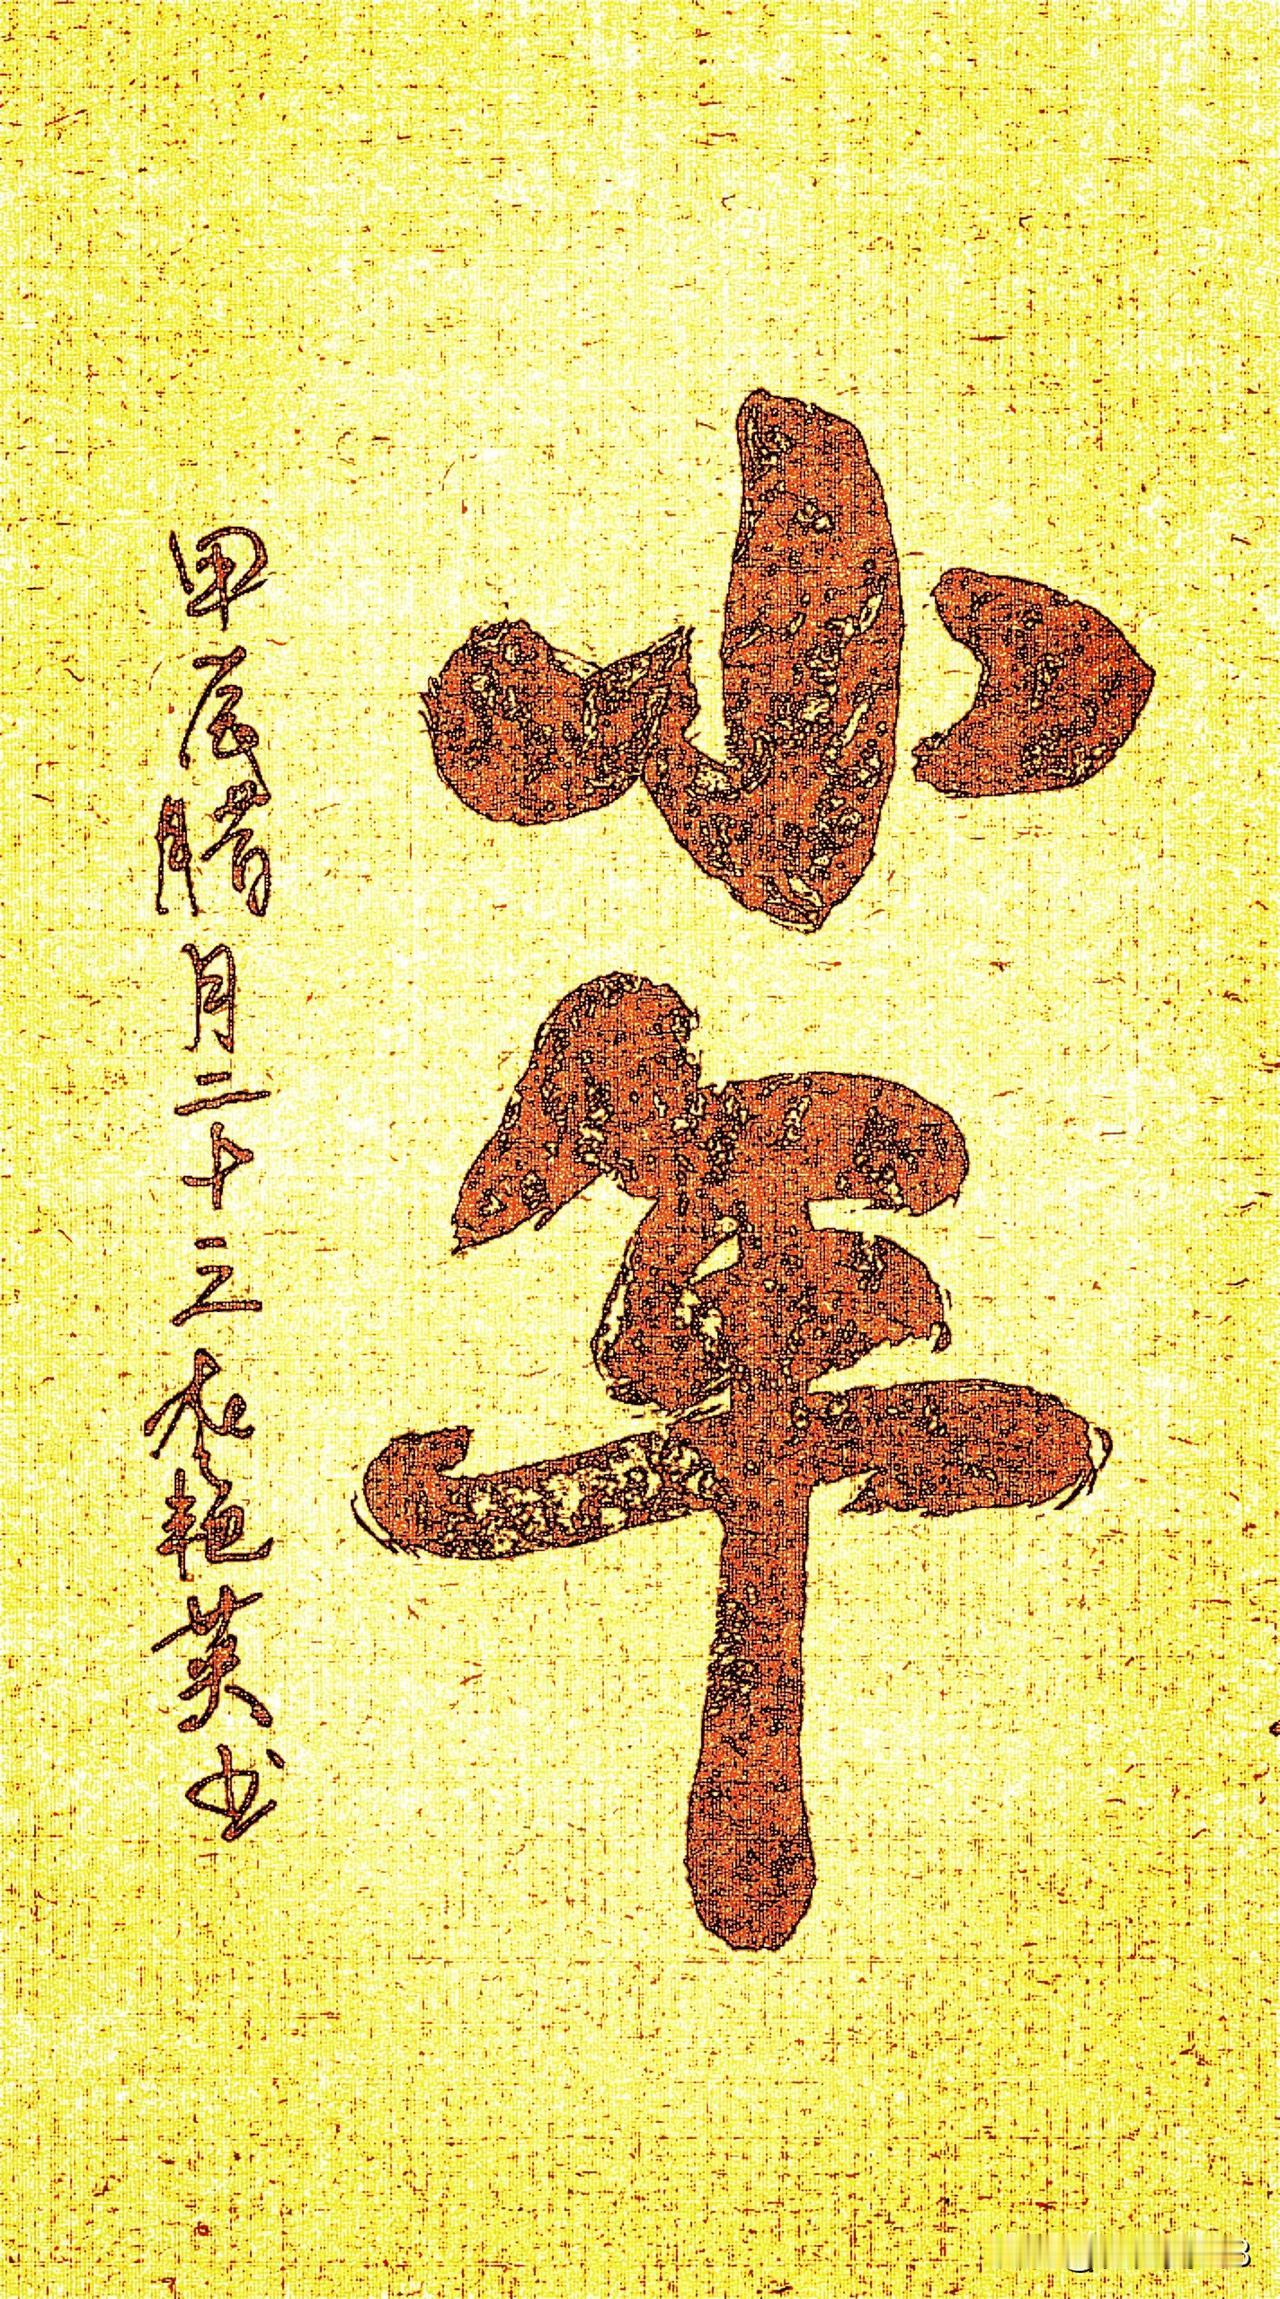 小年
甲辰腊月二十三衣艳英书